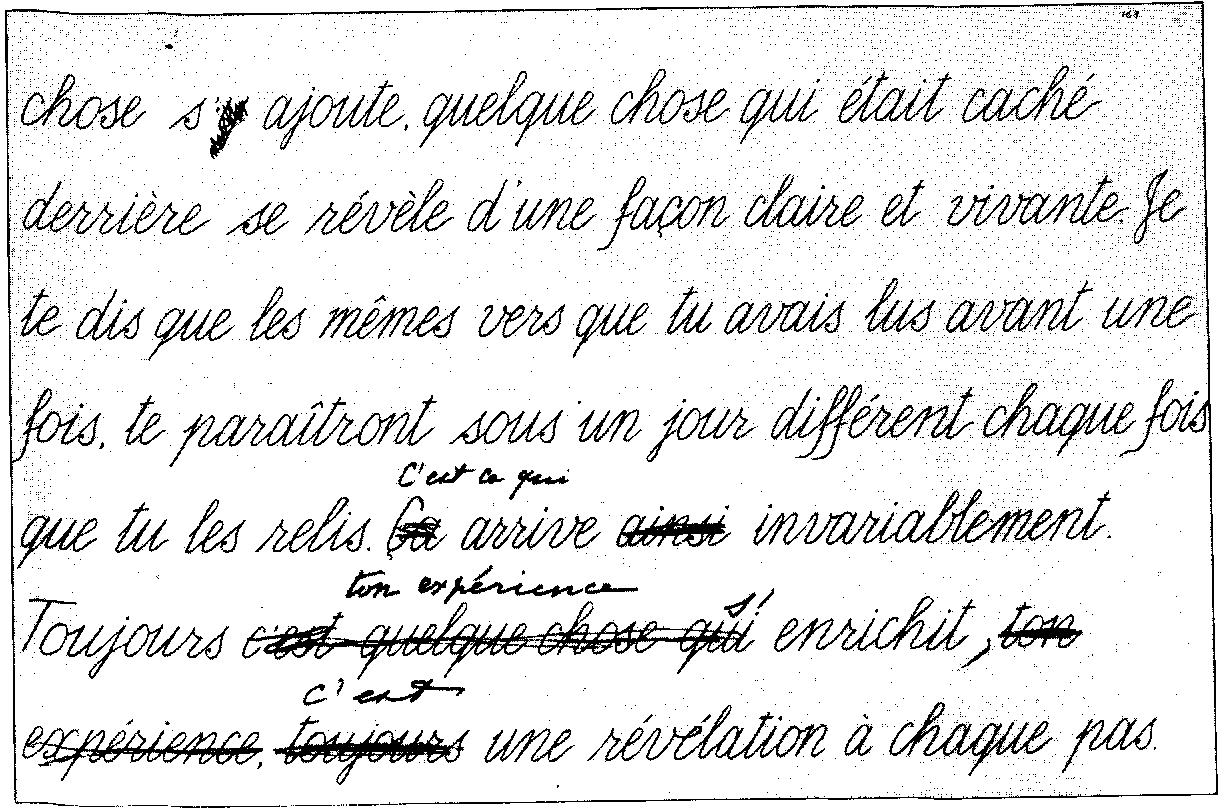 chose s' ajoute, quelque chose qui était caché
derrière se révèle d'une façon claire et vivante. Je
te dis que les mêmes vers que tu avais lus avant une
fois, te paraîtront sous un jour différent chaque fois
C'est ce qui
que tu les relis. Ça arrive ainsi invariablement.
ton expérience s'
Toujours c'est quelque chose qui enrichit, ton
c'est
expérience, toujours une révélation à chaque pas.